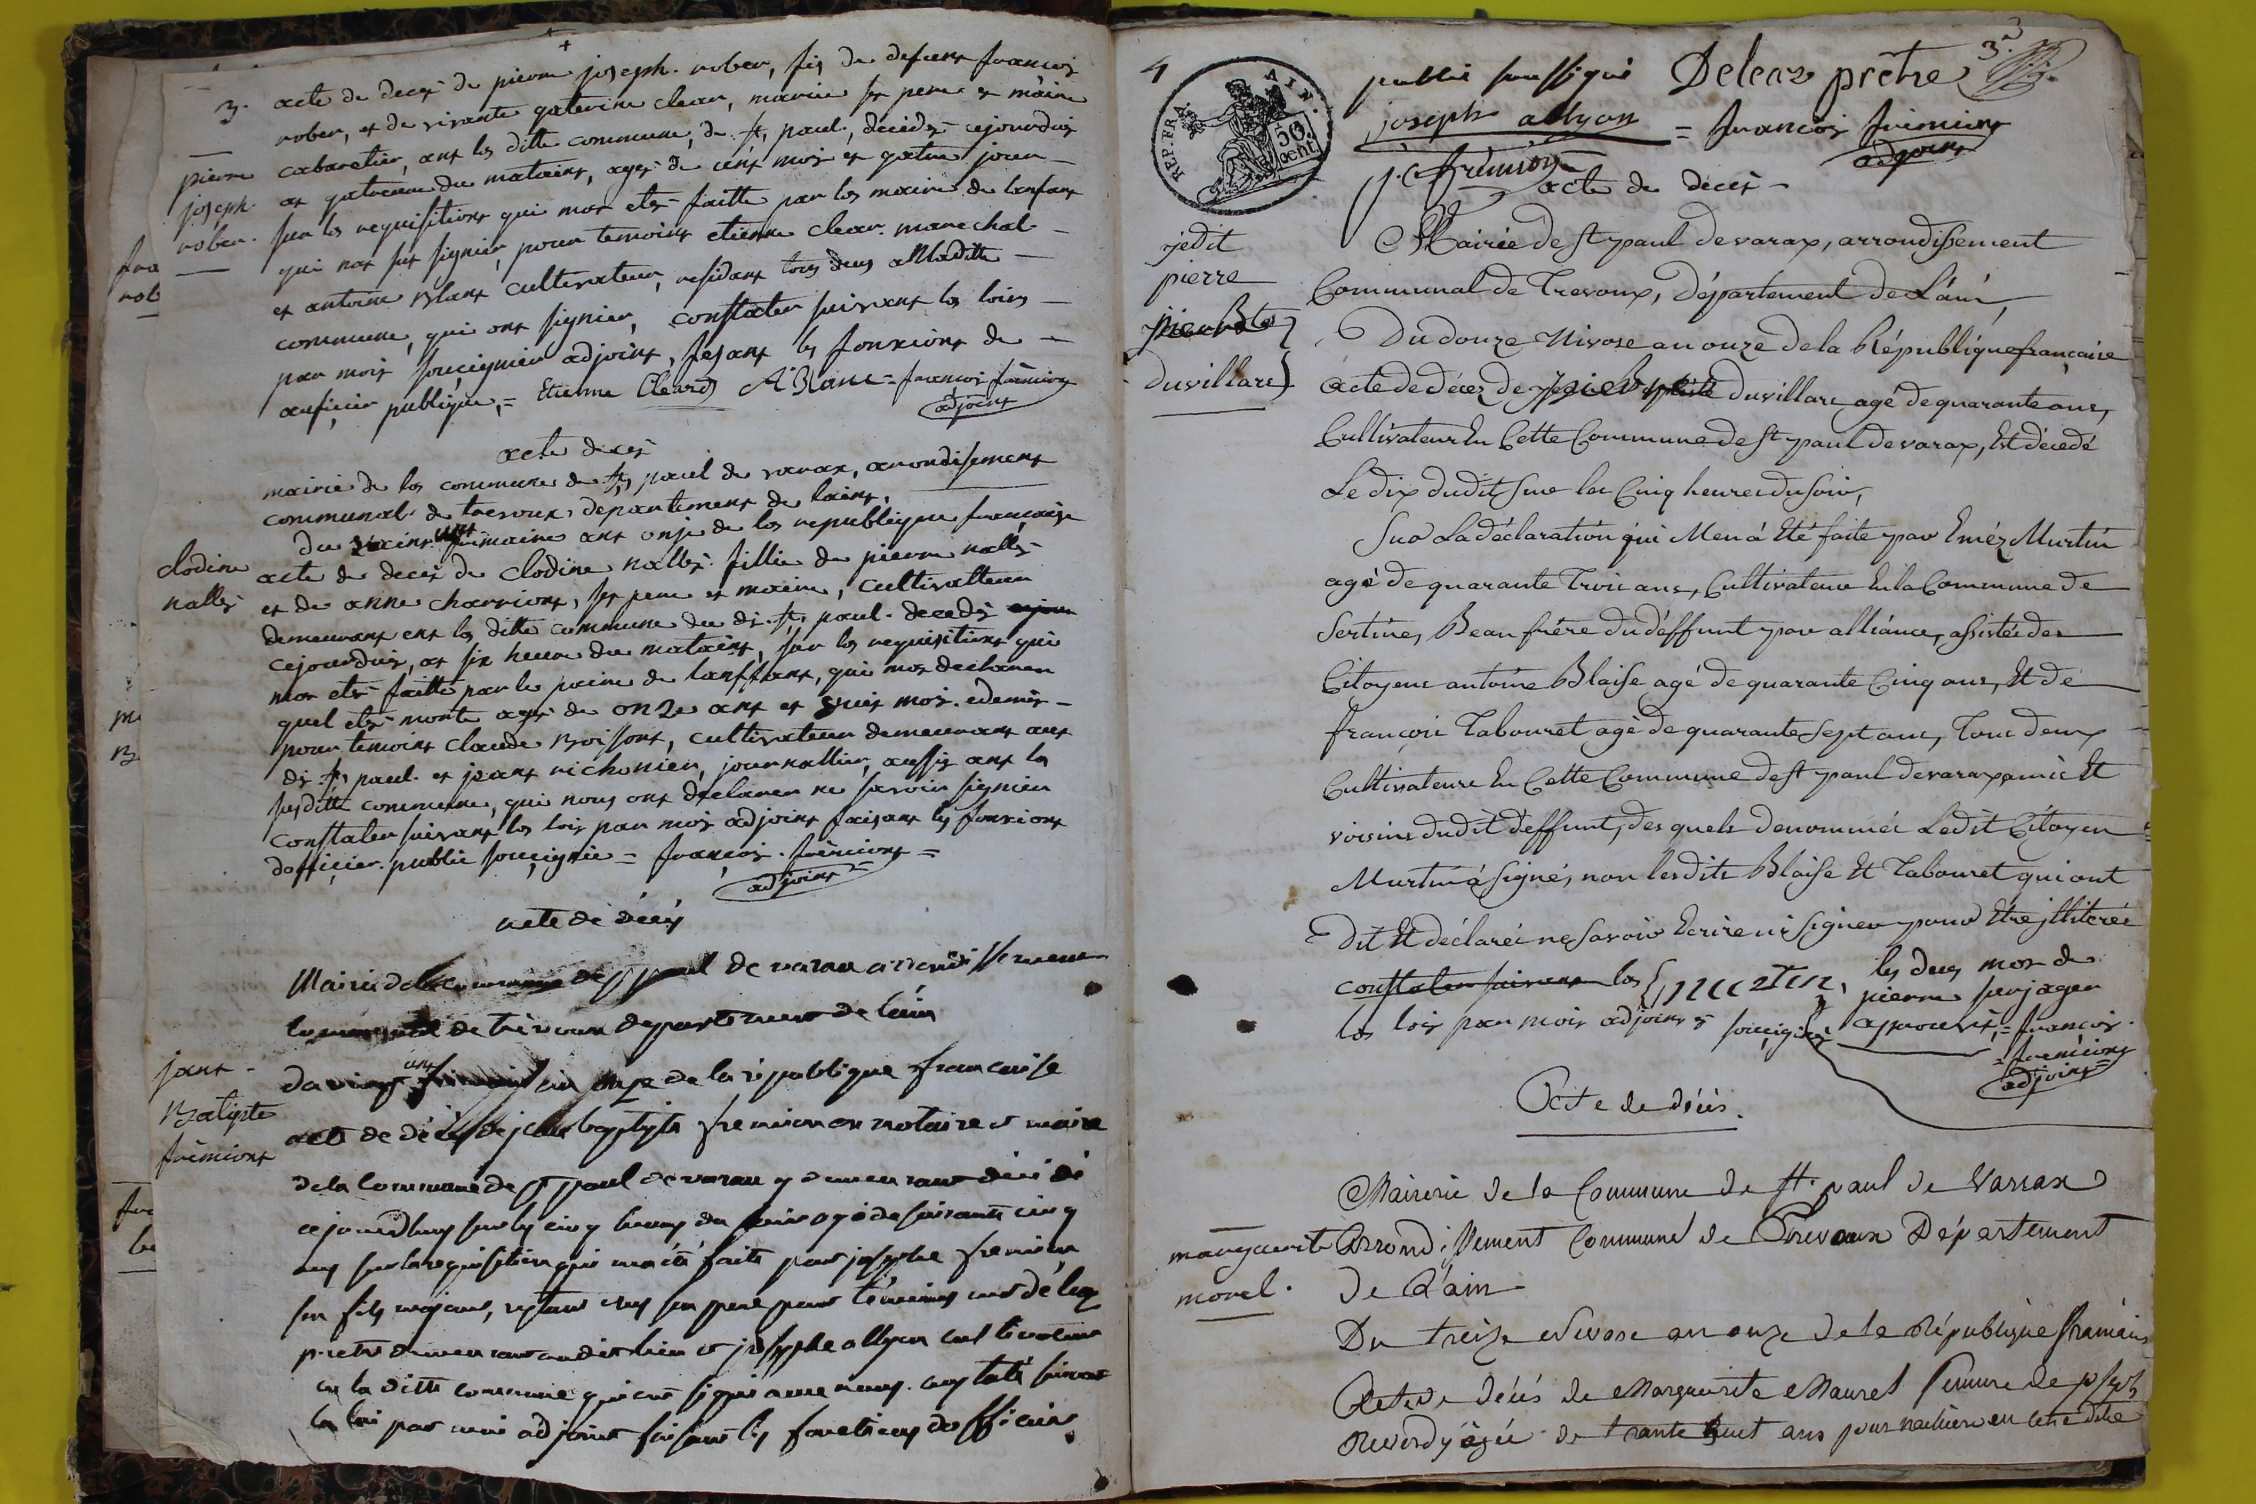 3. acte de deces de pierre joseph. rober, fis de defient francois
rober, et de vivante gaterine clear, mariee ses pere et maire
cabaretier, ant les ditte commune, de st paul, decede cejourduis
at gatreure du mataint, ages de cent mois et gatre jour
pierre
joseph.
rober.
sur les requisitiont qui mot ete faitte par les maire de lanfant
qui not sut signier, pour temoint etienne clear. marechal
et antoine Blant cultivateur, residant tous deus alladitte
commune, qui ont signier, constater suivant les loix
par mois souccignier adjoint, fesant les fonxiont de
auficier publique, = Etienne Cleard ABlanc = francois fremiont
adjoint
acte deces
mairie de las commune de st paul de varax, arondisement
communal de trevoux, departiment de laint,
du vaint unt frimaire ant onje de los republique francaise
clodine
nallet
acte de deces de clodine nallet. fillie de pierre nallet
et de anne charriont, ses pere et maire, cultivatteur
demeurant ent les ditte commune du di. st paul. decede
cejourduis, at six heure du mataint, sur les requisitiont qui
mot ete faitte par le paire de lanffant, qui mot declarer
quel ete morte ages de onze ans et mois. edemis
pour temoint claude Boissont, cultivateur demeurant aut
di st paul. et jeant richonier, journallier, aussis ant la
susditte commune, qui nous ont declarer ne savoir signier
constater suivant les lois par mois adjoint faisant les fonxiont
dofficier. public souccignie = francois. fremiont =
adjoint
acte de décès
Mairie de la commune de st paul de varax arondissement
communal de trévoux département de l'ain
du vingt unt frimaire an onze de la république francaise
jant
Batiste
fremiont
acte de décès de jean baptiste fremion notaire et maire
de la commune de st paul de varax y demeurant décédé
ce jourdhuy sur les cinq heures du soir agé de soixante cinq
ans sur la requisition qui m'a été faite par joseph fremion
son fils majeur, restant chez son pere pour témoins
prêtre demeurant audit lieu et joseph allyon cultivateur
en la ditte commune qui ont signé avec nous. constaté suivant
la loi par moi adjoint faisant les fonctions dofficier
4
3.
REP. FRA.
AIN.
50
cent
public soussigné Deleaz prêtre
joseph allyon = francois fremiont
adjoint
j. c fremion
acte de decès
Mairie de st paul de varax, arrondissement
Communal de Trevoux, Département de L'ain,
jedit
pierre
duvillard
Du douze Nivose an onze de la République française
Acte de décez de duvillard agé de quarante ans,
Cultivateur En Cette Commune de st paul de varax, Est décedé
Le dix dudit sur les Cinq heures du soir,
Sur La déclaration qui M'en á Eté faite par Eméz Murtin
agé de quarante Trois ans, Cultivateur En la Commune de
Sertine, Beau frére du déffunt par alliance, assistée des
Citoyens antoine Blaise agé de quarante Cinq ans, Et de
françois Tabouret agé de quarante sept ans, Tous deux
Cultivateurs En Cette Commune de st paul de varax amis Et
voisins dudit deffunt, des quels denommés Ledit Citoyen
Murtin á signé, non lesdits Blaise Et Tabouret qui ont
Dit Et déclarés ne savoir Ecrire ni signer pour Etre illiterés
constater suivant los
les deus mot de
pierre
los lois par mois adjoint souccigné
aprouvé = francois.
fremiont
adjoint
Acte de décès.
Mairerie de la Commune de st. paul de Varrax
marguerite
morel.
Arrondissement Communal de Trevoux Département
de L'ain
Du treize nivose an onze de la République française
Acte de décès de Marguerite Maurel femme de
agée de trante huit ans en cette dite